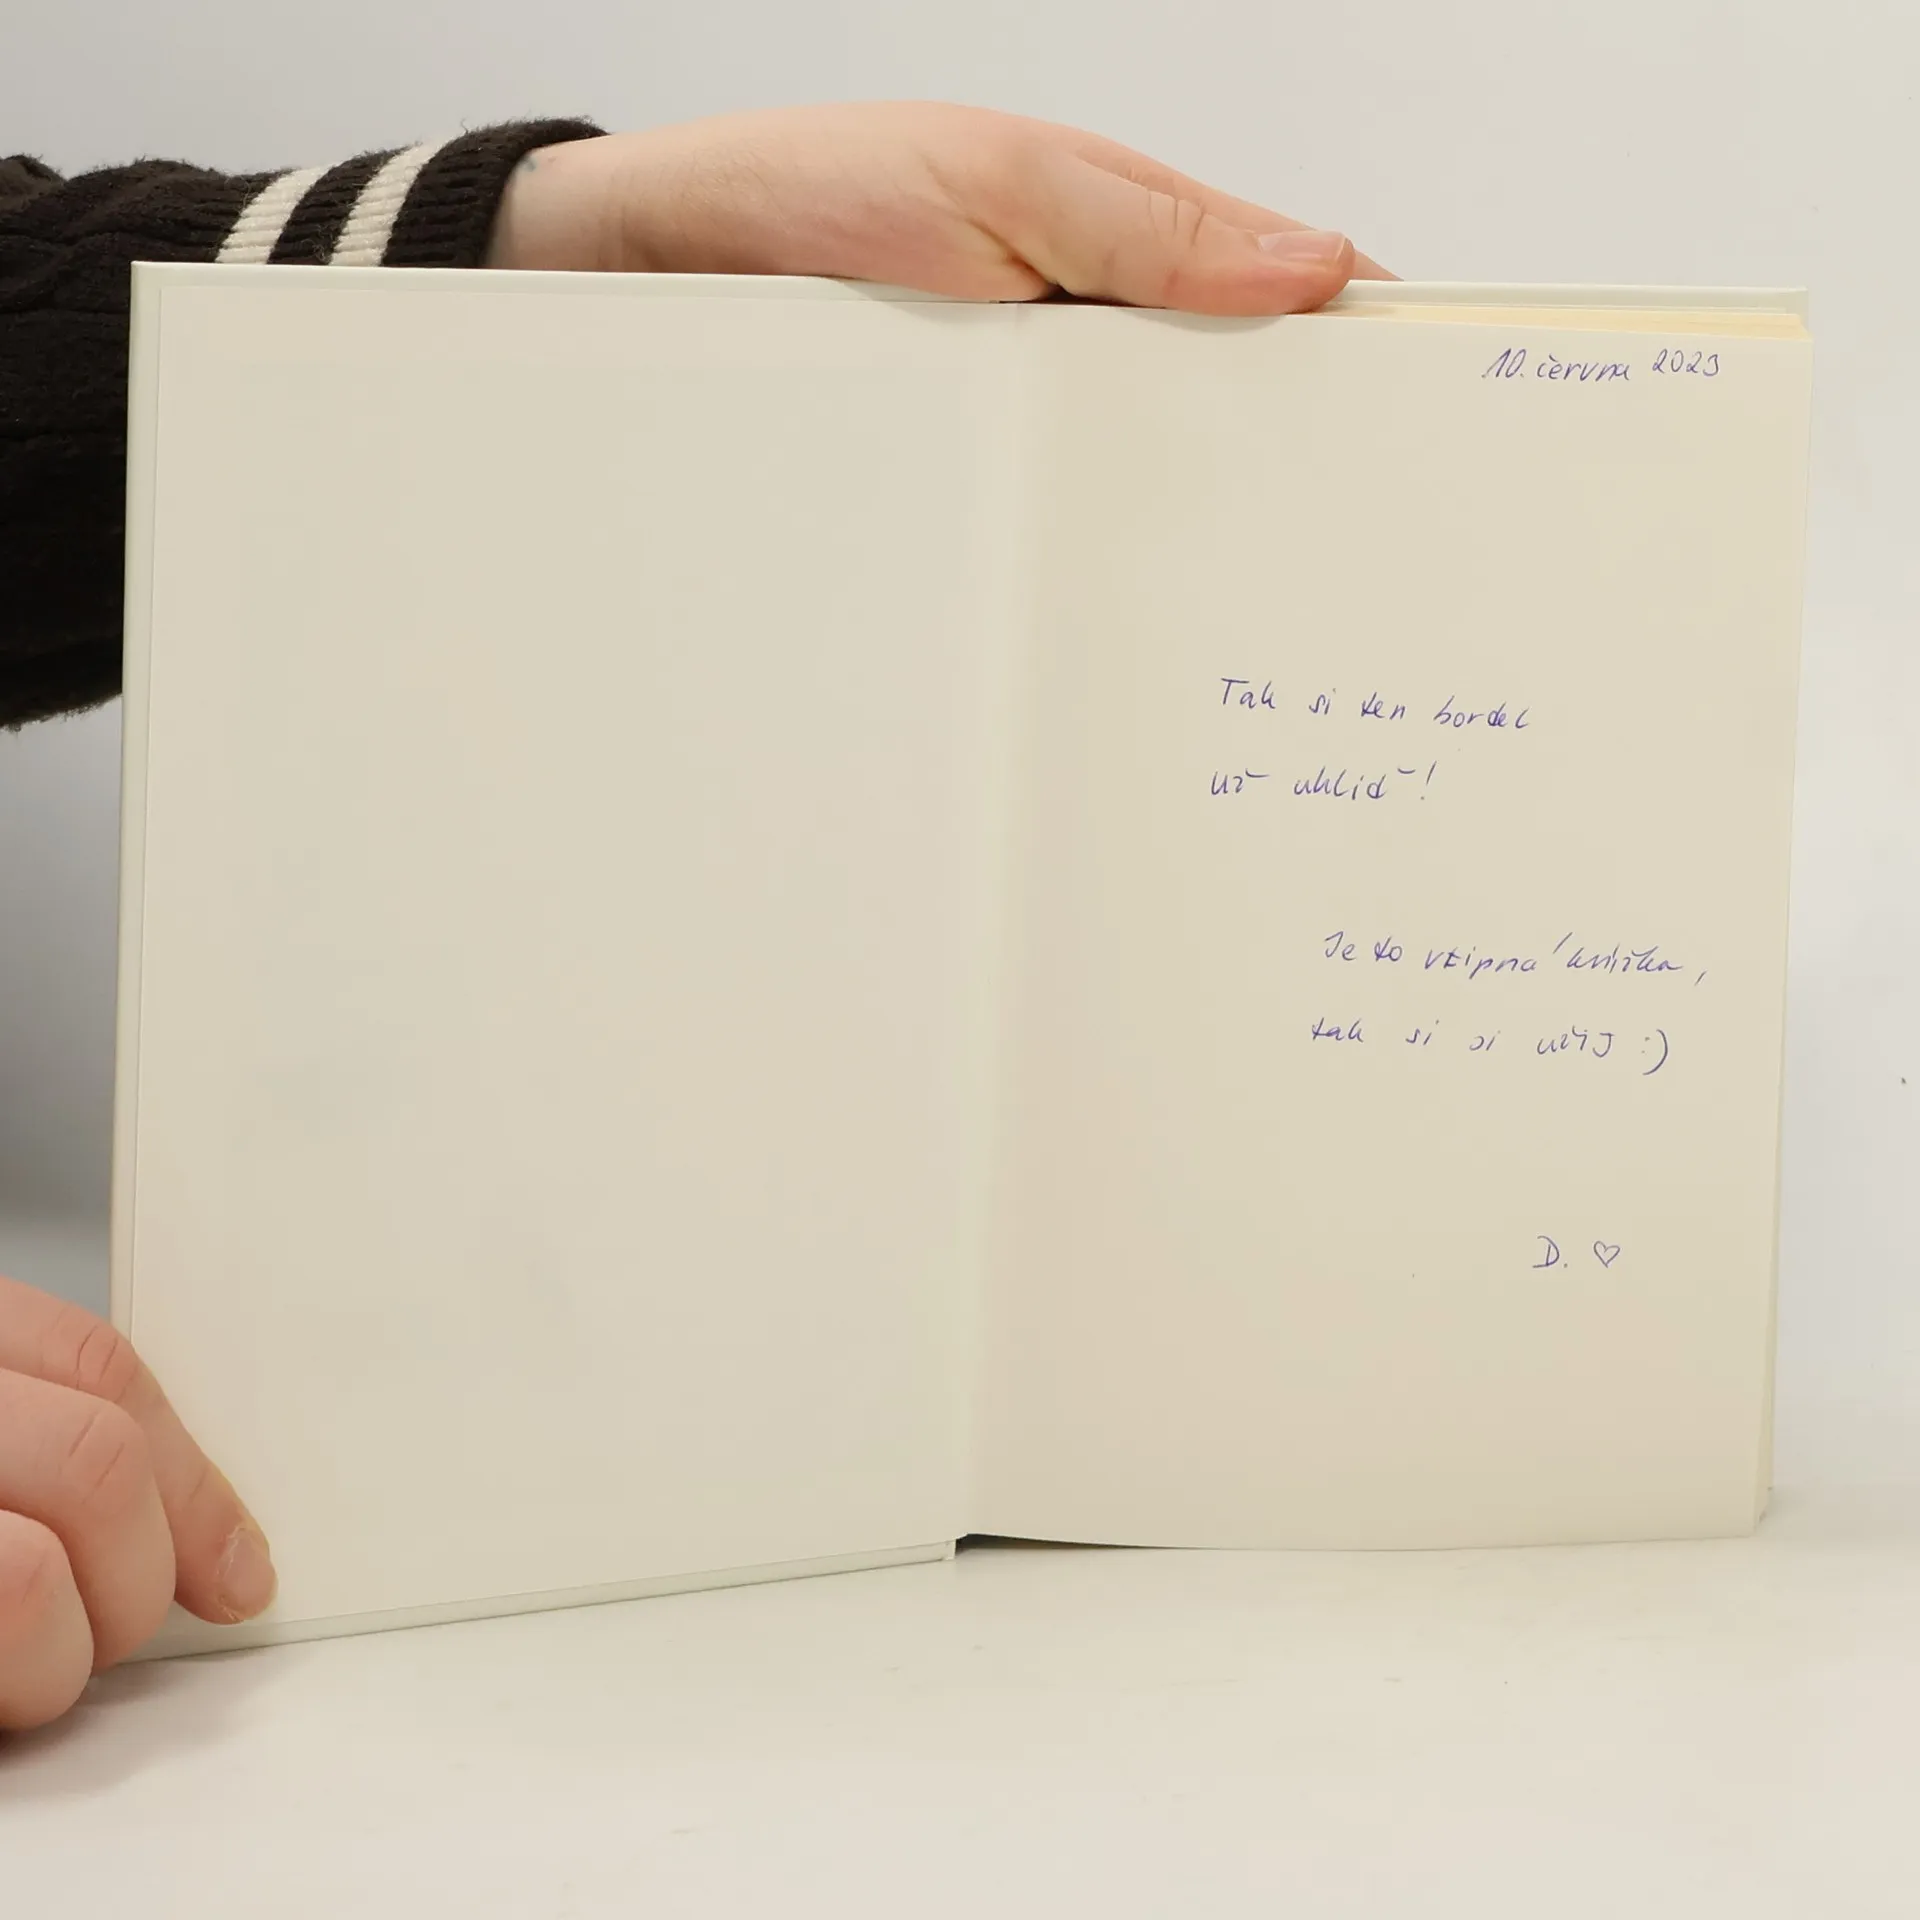 10. června 2023
Tak si ten bordel
už ukliď!
Je to vtipná knížka,
tak si ji užij :)
D. ♡